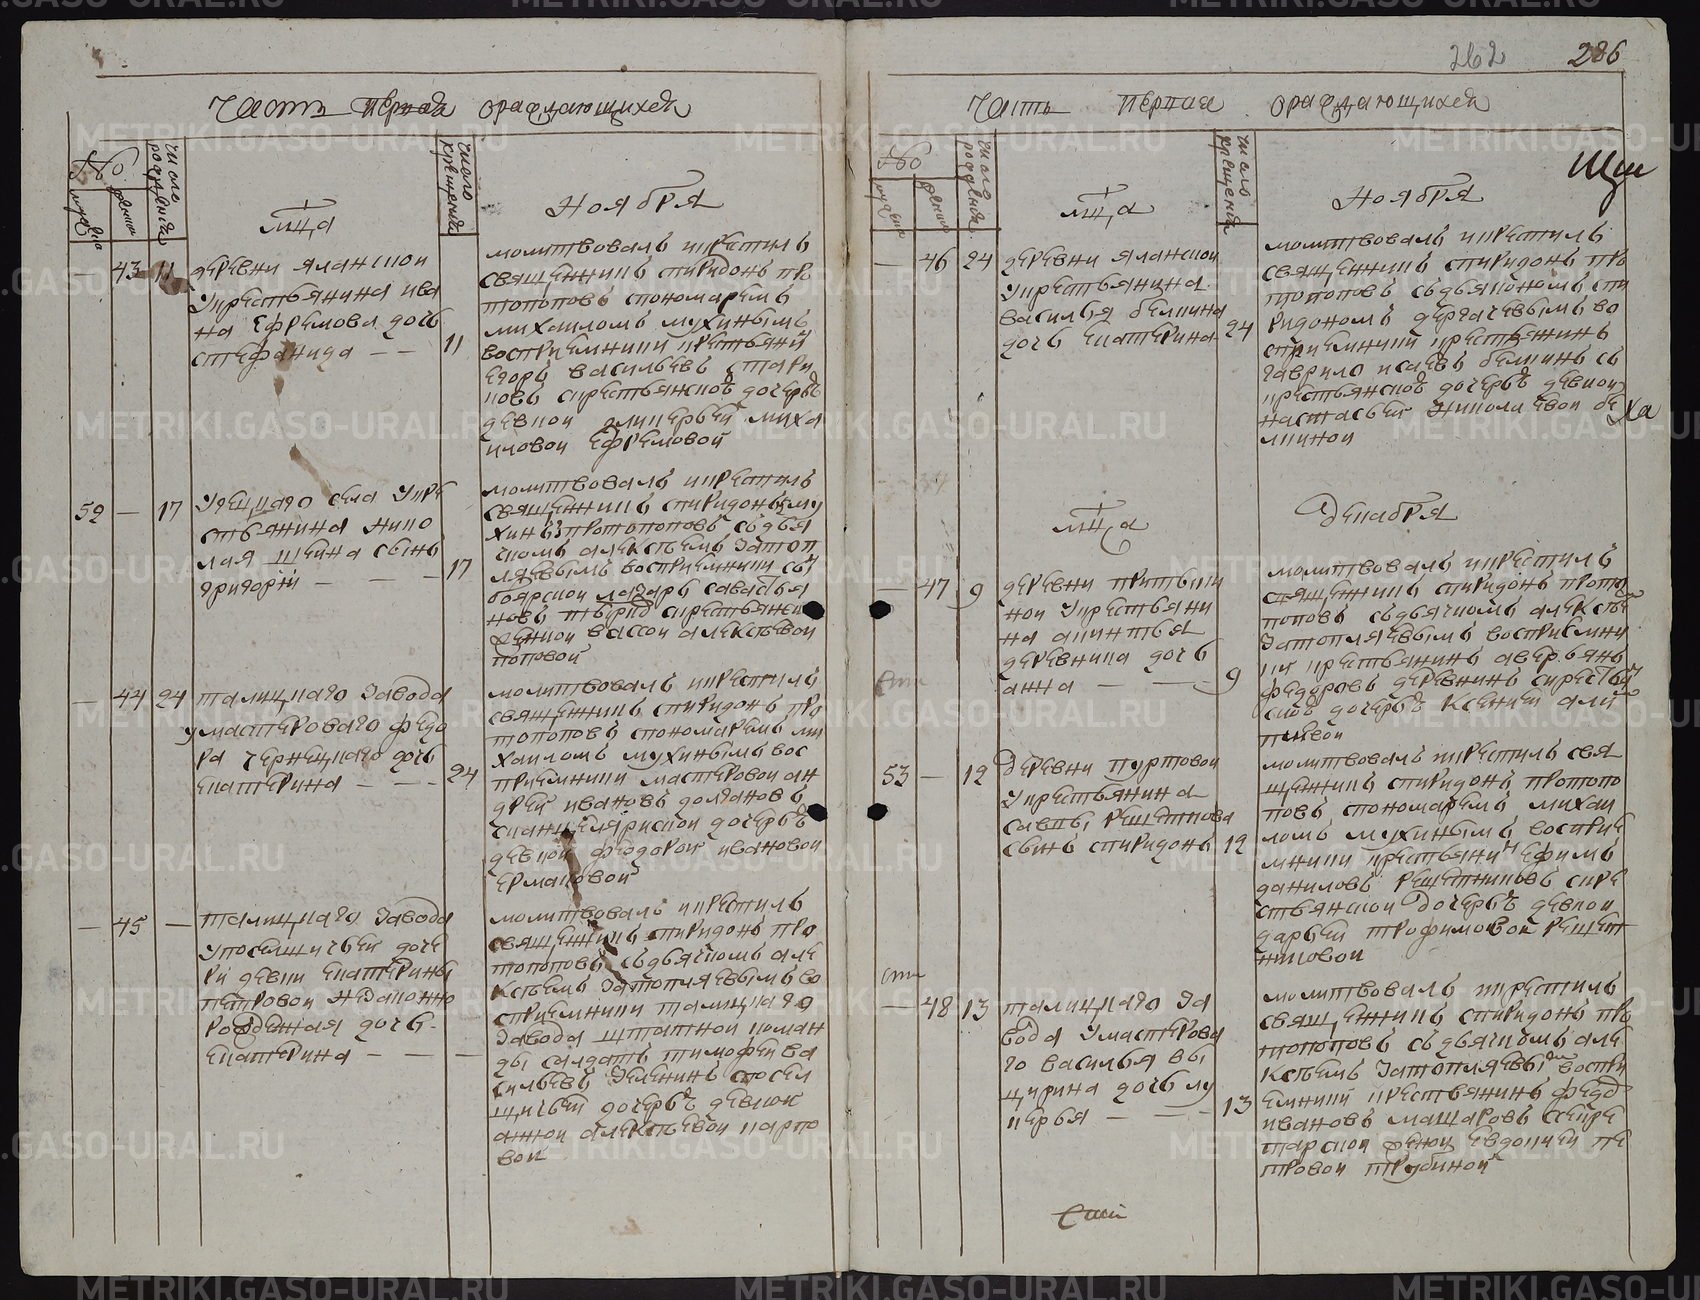 262 286
Часть первая ораждающихся
№
мужеска
женска
число рождения
мца
число крещения
Ноября
43 11
деревни яланской
укрестьянина ива
на ефремова дочь
стефанида — — 11
молитвовалъ икрестилъ
священникъ спиридонъ про
топоповъ спономаремъ
михаиломъ мухинымъ
восприемники крестьянинъ
егоръ васильевъ стари
ковъ скрестьянскою дочерью
девкой гликерьей миха
иловой ефремовой
52 — 17
уецкаго села укре
стьянина нико
лая шеина сынъ
григорий — — — 17
молитвовалъ икрестилъ
священникъ спиридонъ
протопоповъ сдья
чкомъ алексеемъ затоп
ляевымъ восприемники сынъ
боярской лазарь савастья
новъ скрестьянской
женкой вассой алексеевой
поповой
— 44 24
талицкаго завода
умастероваго федо
ра чернецкаго дочь
екатерина — — — 24
молитвовалъ икрестилъ
священникъ спиридонъ про
топоповъ спономаремъ ми
хаиломъ мухинымъ вос
приемники мастеровой ан
дрей ивановъ долгановъ
сканцелярской дочерью
девкой федорой ивановой
ермаковой
— 45 —
талицкаго завода
упоселщичьей доче
ри девки екатерины
петровой незаконно
рожденная дочь
екатерина — — —
молитвовалъ икрестилъ
священникъ спиридонъ про
топоповъ сдьячкомъ але
ксеемъ затопляевымъ во
сприемники талицкаго
завода штатной коман
ды салдатъ тимофей ва
сильевъ зеленинъ спосел
щичьей дочерью девкой
анной алексеевой карпо
вой
Часть первая ораждающихся
№
мужеска
женска
число рождения
мца
число крещения
Ноября
— 46 24
деревни яланской
укрестьянина
василья белкина
дочь екатерина 24
молитвовалъ икрестилъ
священникъ спиридонъ про
топоповъ сдьякономъ спи
ридономъ дергачевымъ во
сприемники крестьянинъ
гаврило исаевъ белкинъ съ
крестьянской дочерью девкой
настасьей николаевой бе
лкиной
мца
Декабря
— 47 9
деревни притыки
ной укрестьяни
на акинтья
деревнина дочь
анна — — — 9
молитвовалъ икрестилъ
священникъ спиридонъ прото
поповъ сдьячкомъ алексеемъ
затопляевымъ восприемни
ки крестьянинъ аверьянъ
федоровъ деревнинъ скрестьян
ской дочерью ксенией
53 — 12
деревни нуртовой
укрестьянина
саввы решетникова
сынъ спиридонъ 12
молитвовалъ икрестилъ свя
щенникъ спиридонъ протопо
повъ спономаремъ михаи
ломъ мухинымъ восприе
мники крестьянинъ ефимъ
даниловъ решетниковъ скре
стьянской дочерью девкой
дарьей трофимовой решет
никовой
— 48 13
талицкаго за
вода умастерова
го василья вы
дочь лу
керья — — — 13
молитвовалъ икрестилъ
священникъ спиридонъ про
топоповъ сдьячкомъ але
ксеемъ затопляевымъ воспри
емники крестьянинъ федоръ
ивановъ макаровъ секре
тарской женой евдокией пе
тровой трубиной